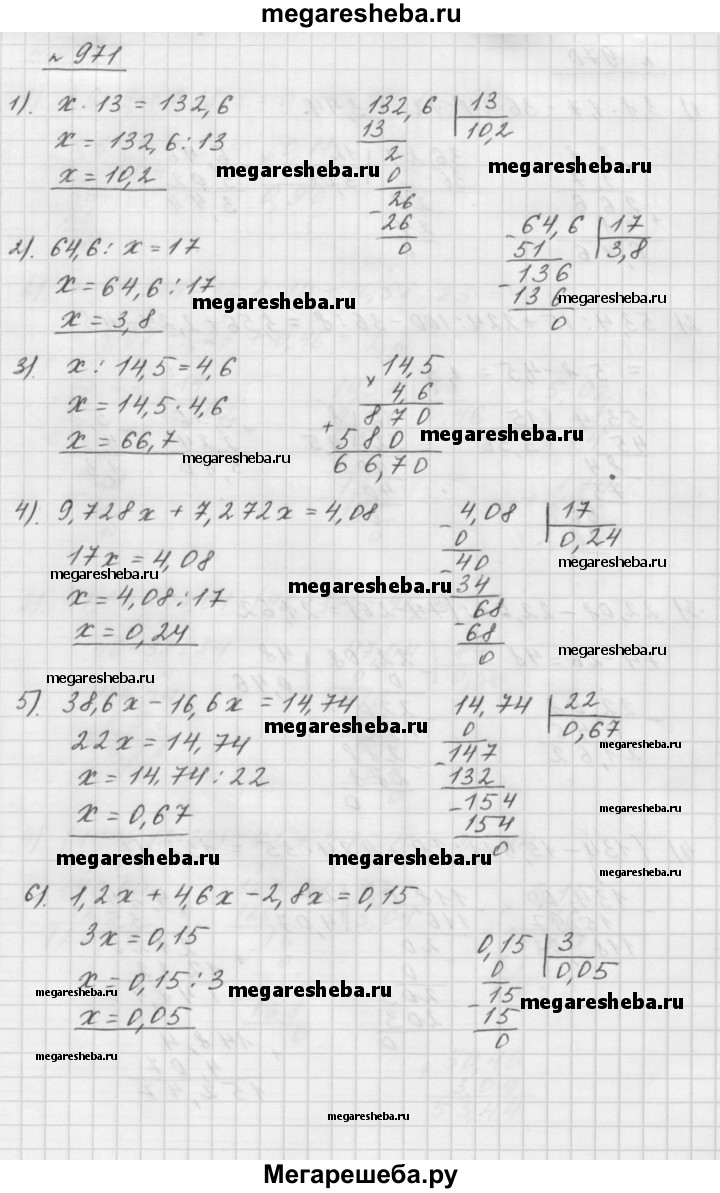 megaresheba.ru
№ 971
1). x · 13 = 132,6
x = 132,6 : 13
x = 10,2
132,6 | 13
13 | 10,2
2
0
- 26
26
0
megaresheba.ru
megaresheba.ru
2). 64,6 : x = 17
x = 64,6 : 17
x = 3,8
- 64,6 | 17
51 | 3,8
- 136
136
0
megaresheba.ru
megaresheba.ru
3). x : 14,5 = 4,6
x = 14,5 · 4,6
x = 66,7
14,5
× 4,6
870
+ 580
66,70
megaresheba.ru
megaresheba.ru
4). 9,728x + 7,272x = 4,08
17x = 4,08
x = 4,08 : 17
x = 0,24
- 4,08 | 17
0 | 0,24
- 40
34
- 68
68
0
megaresheba.ru
megaresheba.ru
megaresheba.ru
megaresheba.ru
5). 38,6x - 16,6x = 14,74
22x = 14,74
x = 14,74 : 22
x = 0,67
14,74 | 22
0 | 0,67
- 147
132
- 154
154
0
megaresheba.ru
megaresheba.ru
megaresheba.ru
megaresheba.ru
megaresheba.ru
megaresheba.ru
6). 1,2x + 4,6x - 2,8x = 0,15
3x = 0,15
x = 0,15 : 3
x = 0,05
0,15 | 3
0 | 0,05
- 15
15
0
megaresheba.ru
megaresheba.ru
megaresheba.ru
megaresheba.ru
megaresheba.ru
Мегарешеба.ру